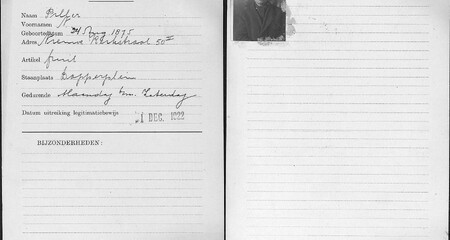 Naam Pelfer
Voornamen
Geboortedatum 24 Aug 1875
Adres Nieuwe Kerkstraat 50
Artikel fruit
Staanplaats Dapperplein
Gedurende Maandag t/m. Zaterdag
Datum uitreiking legitimatiebewijs 1 DEC. 1922
BIJZONDERHEDEN: